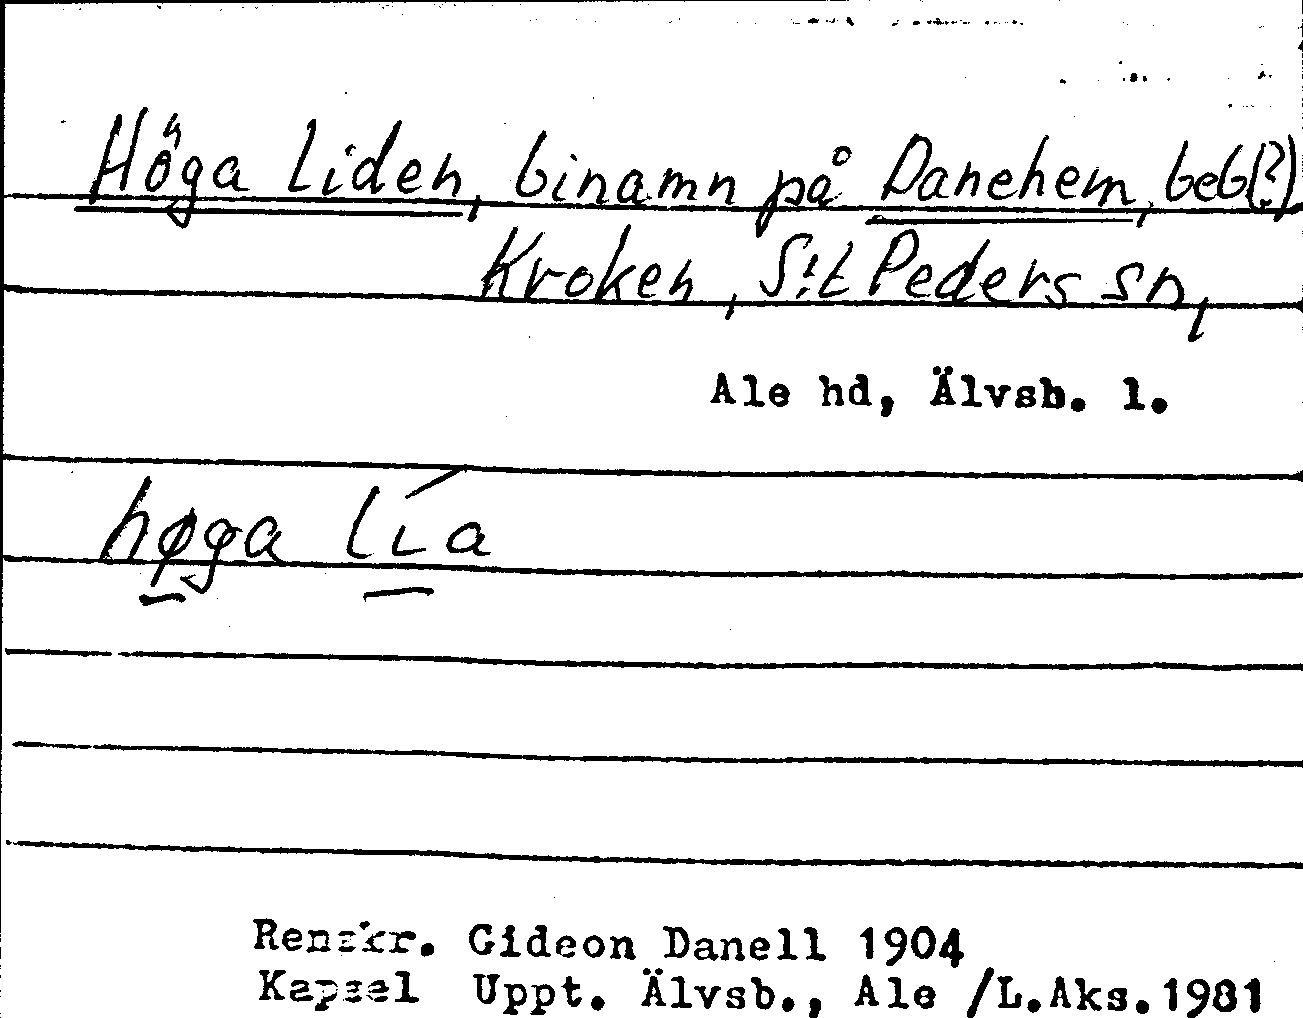 Höga Liden, binamn på Danehem, beb(?)
Kroken, S:t Peders sn,
Ale hd, Älvsb. l.
høga lía
Renskr. Gideon Danell 1904
Kapsel Uppt. Älvsb., Ale /L.Aks.1981